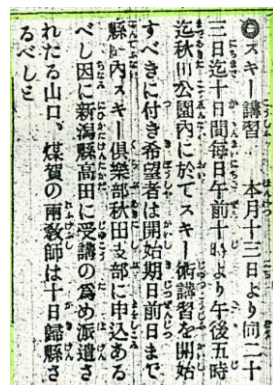 ◎スキー講習　本月十三日より向二十
三日迄十日間毎日午前十時より午後五時
迄秋田公園內に於てスキー術講習を開始
すべきに付き希望者は開始期日前日まで
縣廳內スキー俱樂部秋田支部に申込ある
べし因に新潟縣高田に受講の爲め派遣さ
れたる山口、煤賀の兩敎師は十日歸縣さ
るべしと